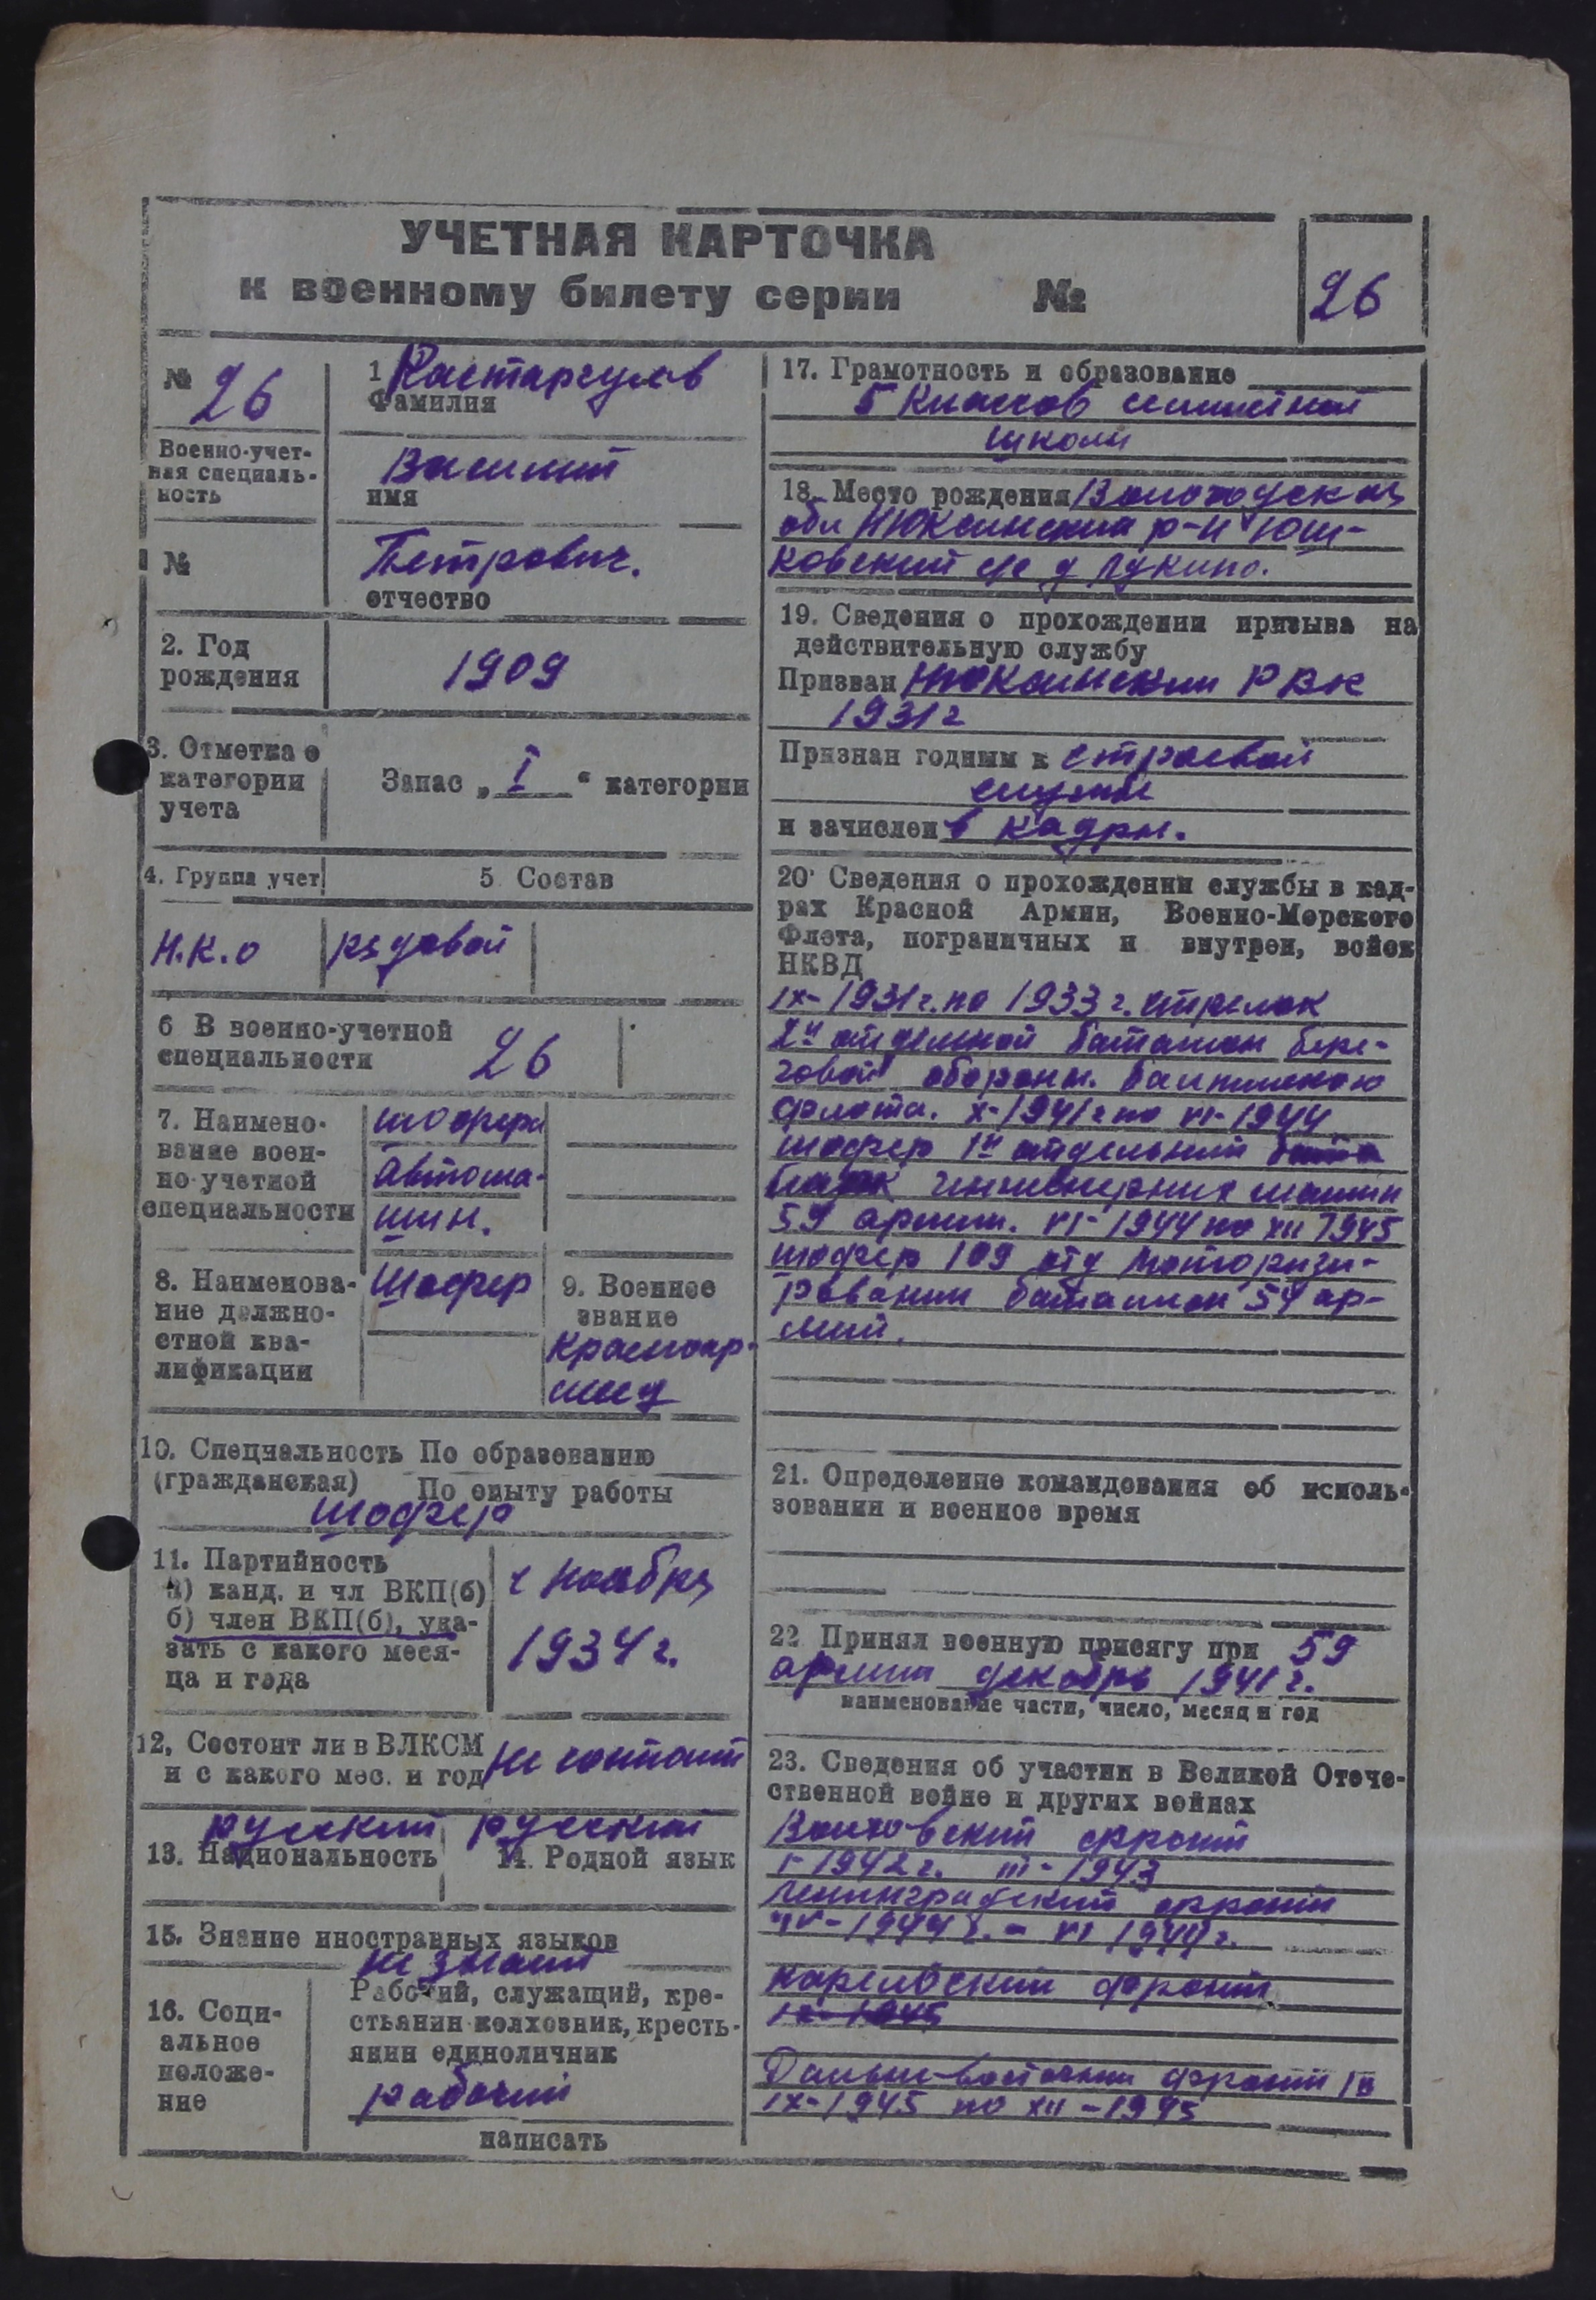 УЧЕТНАЯ КАРТОЧКА
к военному билету серии №
26
№ 26
Военно-учет-
ная специаль-
ность
№
1
Фамилия
Василий
имя
Петрович.
отчество
2. Год
рождения
1909
3. Отметка о
категории
учета
Запас „ I “ категории
4. Группа учет
5 Состав
Н.К.О
рядовой
6 В военно-учетной
специальности
26
7. Наимено-
вание воен-
но-учетной
специальности
шофера
автома-
шин.
8. Наименова-
ние должно-
стной ква-
лификации
Шофер
9. Военное
звание
красноар-
меец
10. Специальность По образованию
(гражданская) По опыту работы
шофер
11. Партийность
а) канд. и чл ВКП(б)
б) член ВКП(б), ука-
зать с какого меся-
ца и года
с ноября
1934 г.
12, Состоит ли в ВЛКСМ
и с какого мес. и год
не состоит
русский русский
13. Национальность 14. Родной язык
15. Знание иностранных языков
не знает
16. Соци-
альное
положе-
ние
Рабочий, служащий, кре-
стьянин колхозник, кресть-
янин единоличник
рабочий
написать
17. Грамотность и образование
5 классов
школы
18. Место рождения Вологодская
обл Нюксинский р-н Юш-
ковский с/с д Лукино.
19. Сведения о прохождении призыва на
действительную службу
Призван Нюксинский РВК
1931 г
Признан годным к строевой
службе
и зачислен в кадры.
20. Сведения о прохождении службы в кад-
рах Красной Армии, Военно-Морского
Флота, пограничных и внутрен, войск
НКВД
IX-1931 г. по 1933 г. стрелок
2й отдельной батальон бере-
говой обороны. Балтийского
флота. X-1941 г по VI-1944
шофер 1й отдельный
инженерных машин
59 армии. VI-1944 по XII 1945
шофер 109 отд моторизи-
рованный батальон 59 ар-
мии.
21. Определение командования об исполь-
зовании и военное время
22 Принял военную присягу при 59
армии декабрь 1941 г.
наименование части, число, месяц и год
23. Сведения об участии в Великой Отече-
ственной войне и других войнах
Волховский фронт
I-1942 г. III-1943
Ленинградский фронт
1944 г. - VI 1944 г.
Карельский фронт
IX-1945
Дальне-восточный фронт
IX-1945 по XII-1945